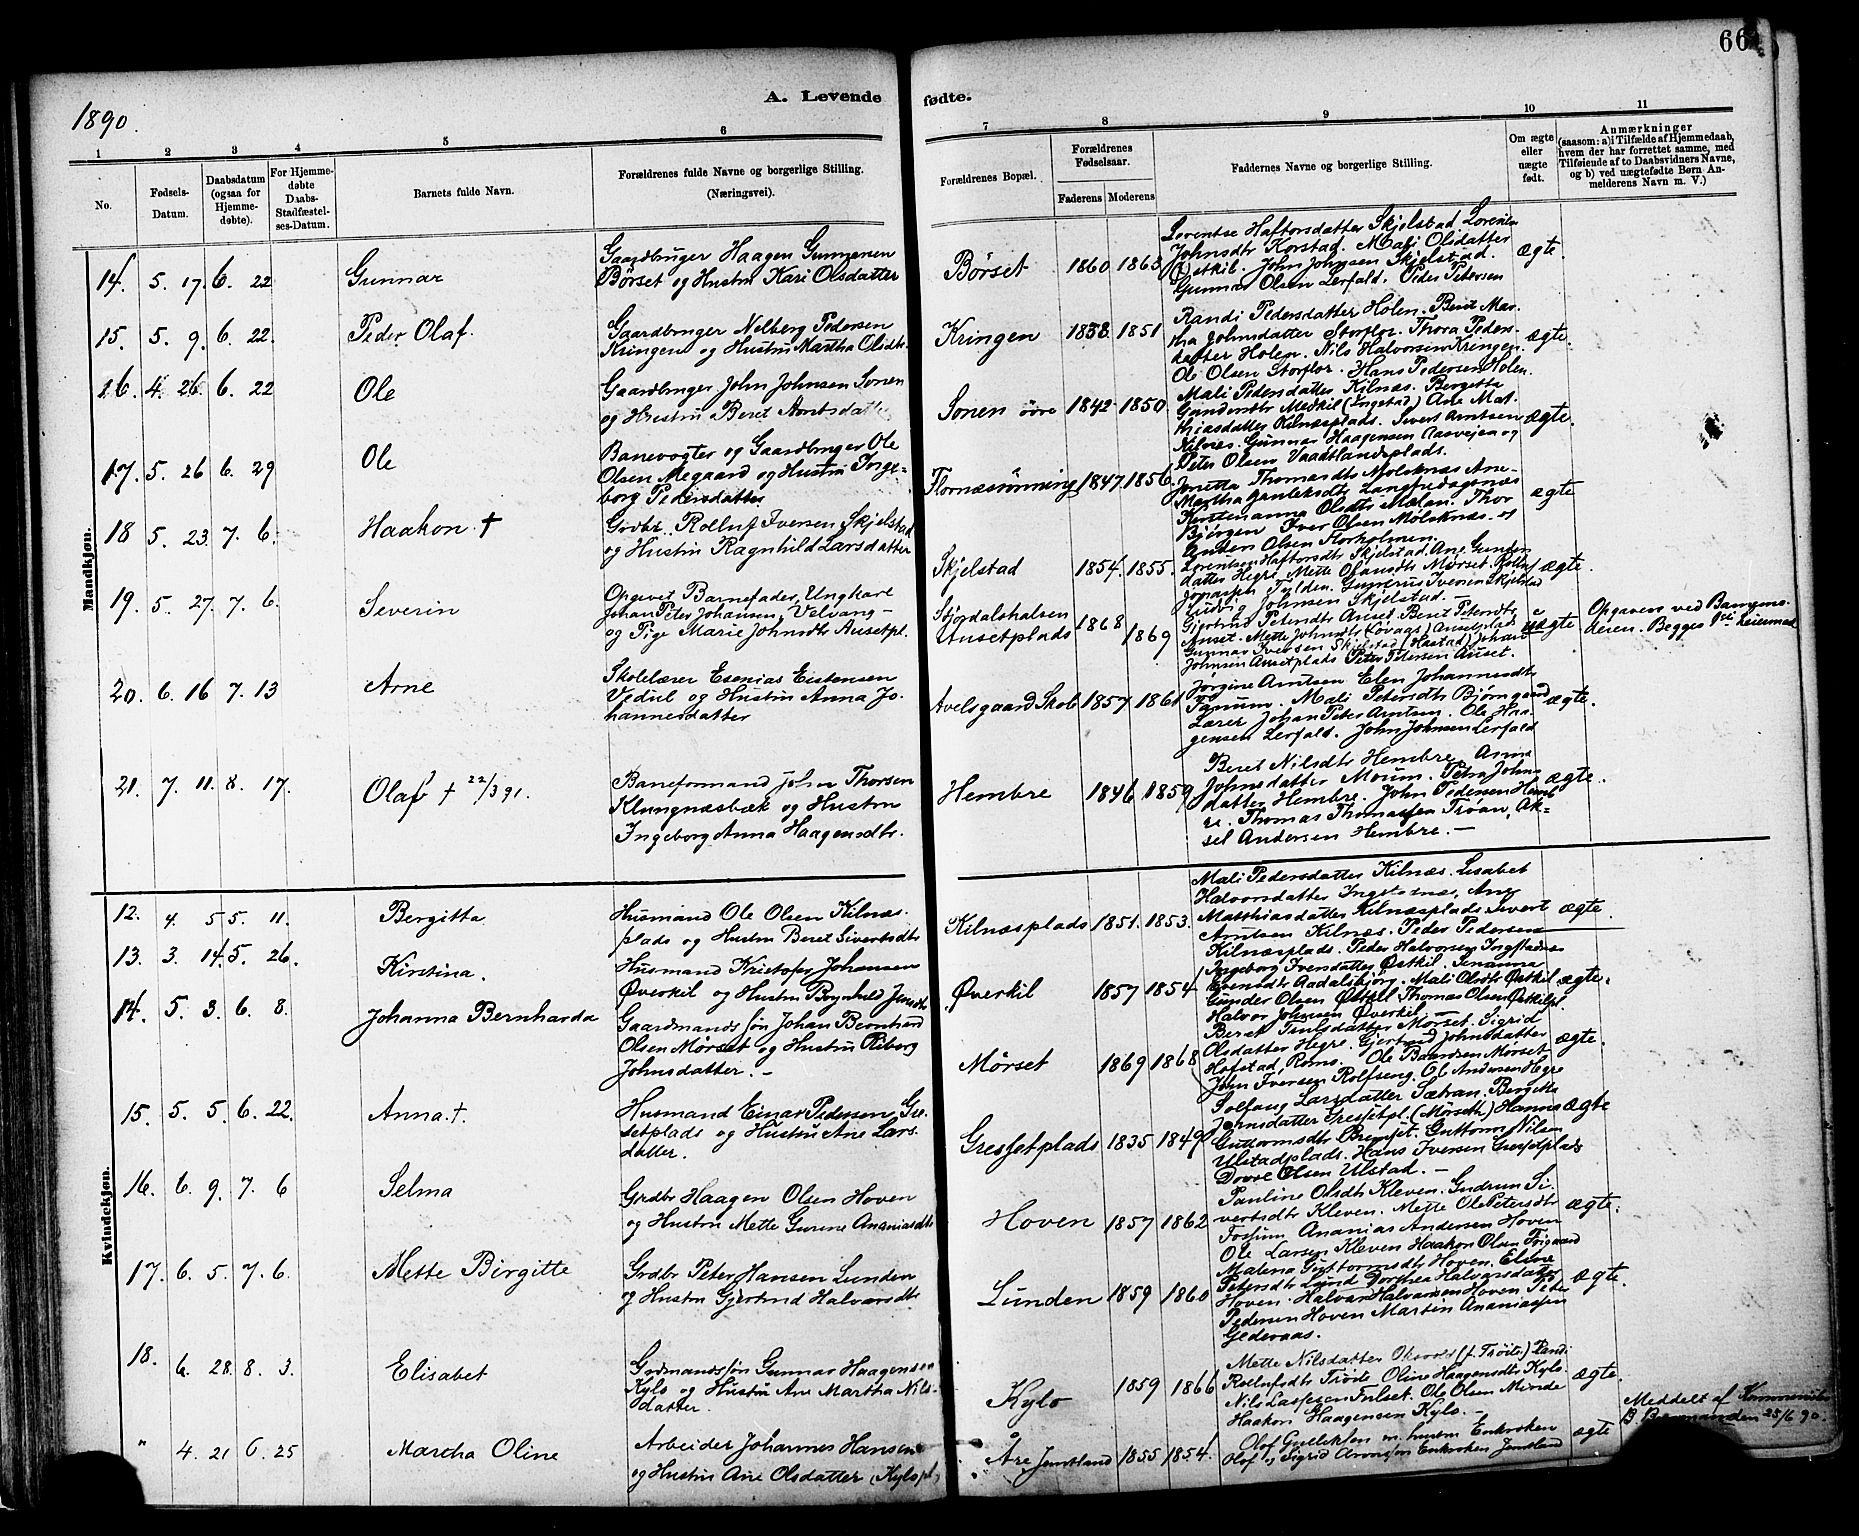 66
1890.
A. Levende fødte.
1 2 3 4 5 6 7 8 9 10 11
No.
Fødsels-
Datum.
Daabsdatum
(ogsaa for
Hjemme-
døbte).
For Hjemme-
døbte
Daabs-
Stadfæstel-
ses-Datum.
Barnets fulde Navn.
Forældrenes fulde Navne og borgerlige Stilling.
(Næringsvei).
Forældrenes Bopæl.
Forældrenes
Fødselsaar.
Faderens Moderens
Faddernes Navne og borgerlige Stilling.
Om ægte
eller
uægte
født.
Anmærkninger
(saasom: a) i Tilfælde af Hjemmedaab,
hvem der har forrettet samme, med
Tilføiende af to Daabsvidners Navne,
og b) ved uægtefødte Børn An-
melderens Navn m. V.)
Mandkjøn.
14. 5. 17. 6. 22 Gunnar
Gaardbruger Haagen Gunnersen
Børset og Hustru Kari Olsdatter
Børset 1860 1863
Lorentse Haftorsdatter Skjelstad Lorentse
Johnsdtr Korstad. Mali Olsdatter
Østkil. John Johnsen Skjelstad.
Gunnar Olsen Lerfald. Peder Petersen
ægte.
15. 5. 9. 6. 22. Peder Olaf.
Gaardbruger Nelberg Pedersen
Kringen og Hustru Martha Olsdtr.
Kringen 1838. 1851
Randi Pedersdatter Holen. Berit Mar-
tha Johnsdatter Storflor. Thora Peders-
datter Holen. Nils Halvorsen Kringen.
Ole Olsen Storflor. Hans Pedersen Holen.
ægte.
16. 4. 26. 6. 22 Ole
Gaardbruger John Johnsen Sonen
og Hustru Beret Arntsdatter
Sonen øvre 1842 1850
Mali Pedersdatter Kilnæs. Bergitta
Gundersdtr Medkil (Ingstad) Ane Mat-
thiasdatter Kilnæsplads. Sivert Arntsen
Kilnæs. Gunnar Haagensen Aasvejen og
Peter Olsen Vaadtlandsplads.
ægte.
17. 5. 26 6. 29 Ole
Banevogter og Gaardbruger Ole
Olsen Megaard og Hustru Inge-
borg Pedersdatter
Flornæsrønning 1847 1856
Jonetta Thomasdtr Moloknæs Ane
Martha
Kerstenanna Olsdtr Mælan. Thor
Bjørgen Iver Olsen Moloknæs. og
Anders Olsen Florholmen.
ægte
18 5. 23. 7. 6. Haakon †
Grdbr. Rolluf Iversen Skjelstad
og Hustru Ragnhild Larsdatter
Skjelstad 1854. 1855.
Lorentsen Haftorsdtr Skjelstad. Ane Gunders
datter Hegre Mette Olausdtr Mørset. Rolluf
Jonassen Fylden. Gunnerus Iversen Skjelstad
Ludvig Johnsen Skjelstad. —
ægte.
19. 5. 27. 7. 6. Severin
Opgivet Barnefader, Ungkarl
Johan Peter Johansen, Velvang
og Pige Marie Johnsdtr Ausetpl.
Stjørdalshalsen
Ausetplads 1868 1869
Gjertrud Petersdtr Auset. Beret Petersdtr
Auset. Mette Johnsdtr (Lovaas) Ausetplads
Gunnar Iversen Skjelstad (Hastad) Johan
Johnsen Ausetplads Peter Petersen Auset.
uægte
Opgaven ved Barnemo-
deren. Begges 1ste Leiermaal
20. 6. 16 7. 13 Arne
Skolelærer Esenias Eistensen
Vedul og Hustru Anna Jo-
hannesdatter
Avelsgaard Skole 1857 1861
Jørgine Arntsen Elen Johannesdtr
Fanum. Mali Petersdtr Bjørngaard
Lærer Johan Peter Arntsen. Ole Haa-
gensen Lerfald. John Johnsen Lerfald
ægte.
21. 7. 11. 8. 17. Olaf † 22/3 91.
Baneformand John Thorsen
Klungnæsbæk og Hustru
Ingeborg Anna Haagensdtr.
Hembre 1846 1859
Beret Nilsdtr Hembre. Anna
Johnsdatter Moum. Petra Johns
datter Hembre. John Pedersen Hemb
re. Thomas Thomassen Trøan, Ak-
sel Andersen Hembre. —
ægte.
Kvindekjøn.
12. 4. 5 5. 11. Bergitta
Husmand Ole Olsen Kilnæs-
plads og Hustru Beret Sivertsdtr
Kilnæsplads 1851. 1853.
Mali Pedersdatter Kilnæs. Lisabet
Halvorsdatter Ingstadnæs, Ane
Matthiasdatter Kilnæsplads. Sivert
Arntsen Kilnæs. Peder Pedersen
Kilnæsplads. Peder Halvorsen
ægte.
13. 3. 14. 5. 26. Kirstina.
Husmand Kristofer Johansen
Øverkil og Hustru Brynhild Jensdtr
Øverkil 1857 1854
Ingeborg Iversdatter Østkil. Jonanna
Evensdtr Aadalsbjørg. Mali Olsdtr Østkil
Gunder Olsen Østkil. Thomas Olsen Østkilpl.
Halvor Johnsen Øverkil.
ægte.
14. 5. 3. 6. 8 Johanna Bernharda
Gaardmandssøn Johan Bernhard
Olsen Mørset og Hustru Riborg
Johnsdatter. —
Mørset 1869 1868
Beret Trulsdatter Mørset. Sigrid
Olsdatter Hegre. Gjertrud Johnsdatter
Hofstad Roms. Ole Baardsen Mørset
John Iversen Rolfseng. Ol. Andersen Hegre
ægte.
15. 5. 5. 6. 22. Anna. †.
Husmand Einar Pedersen Gre-
setplads og Hustru Ane Lars
datter.
Gressetplads 1835 1849
Solfang Larsdatter Sætran. Bergitta
Johnsdatter Gressetpl. (Mørsdtr) Hanna
Guttormsdtr Bremset. Guttorm Nilsen
Ulstadplads. Hans Iversen Gressetplads
Dovre Olsen Ulstad. —
ægte
16. 6. 9. 7. 6 Selma
Grdbr Haagen Olsen Hoven
og Hustru Mette Gurine Ananiasdtr
Hoven 1857 1862
Pauline Olsdtr Kleven. Gudrun Si-
vertsdtr Kleven. Mette Ole Petersdtr
Fossum Ananias Andersen Hoven
Ole Larsen Kleven Haakon Olsen Trøgaard
ægte.
17. 6. 5. 7. 6. Mette Birgitte
Grdbr Peter Hansen Lunden
og Hustru Gjertrud Halvarsdtr
Lunden 1859 1860
Malena Guttormsdtr Hoven. Eline
Petersdtr Lund Dorthea Halvarsdatter
Hoven. Halvar Halvarsen Hoven, Peter
Pedersen Hoven Martin Ananiassen
Gederaas.
ægte.
18. 6. 28. 8. 3. Elisabet
Grdmandssøn Gunnar Haagensen
Kylo og Hustru Ane Martha Nils-
datter.
Kylo 1859 1866
Mette Nilsdatter (f. Trøite) Randi
Rollufsdtr Trøite. Oline Haagensdtr Kylo.
Nils Larssen Fulset. Ole Olsen Minde
Haakon Haagensen Kylo. —
ægte.
" 4. 21 6. 25 Martha Oline
Arbeider Johannes Hansen
og Hustru Ane Olsdatter (Kylspl)
Åre Jemtland 1855 1854
Olof m. hustru Enkroken
Olof og Sigrid Aronsson Enkroken Jemtland
ægte
Meddelt af Kommunist.
B. 25/6 90.